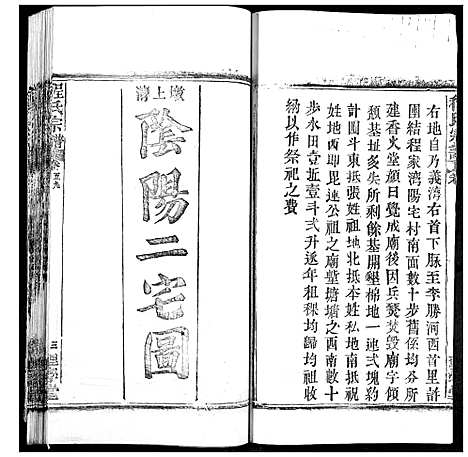 右地自乃義湾右首下脉至李勝河西首里許
團結程家湾陽宅村南面數十步舊係均公所
建香火堂顏曰覺成廟後因兵燹焚毀廟宇傾
頹基址多失所剩餘基開墾棉地一連式塊約
計四斗東抵張姓祖地北抵本姓私地南抵祝
姓地西即毘連公祖之廟堂塘塘之西南數十
步水田壹坵壹斗弍升遞年租稞均歸均祖收
納以作祭祀之費
墩上灣
陰陽二宅圖
程氏宗譜
三